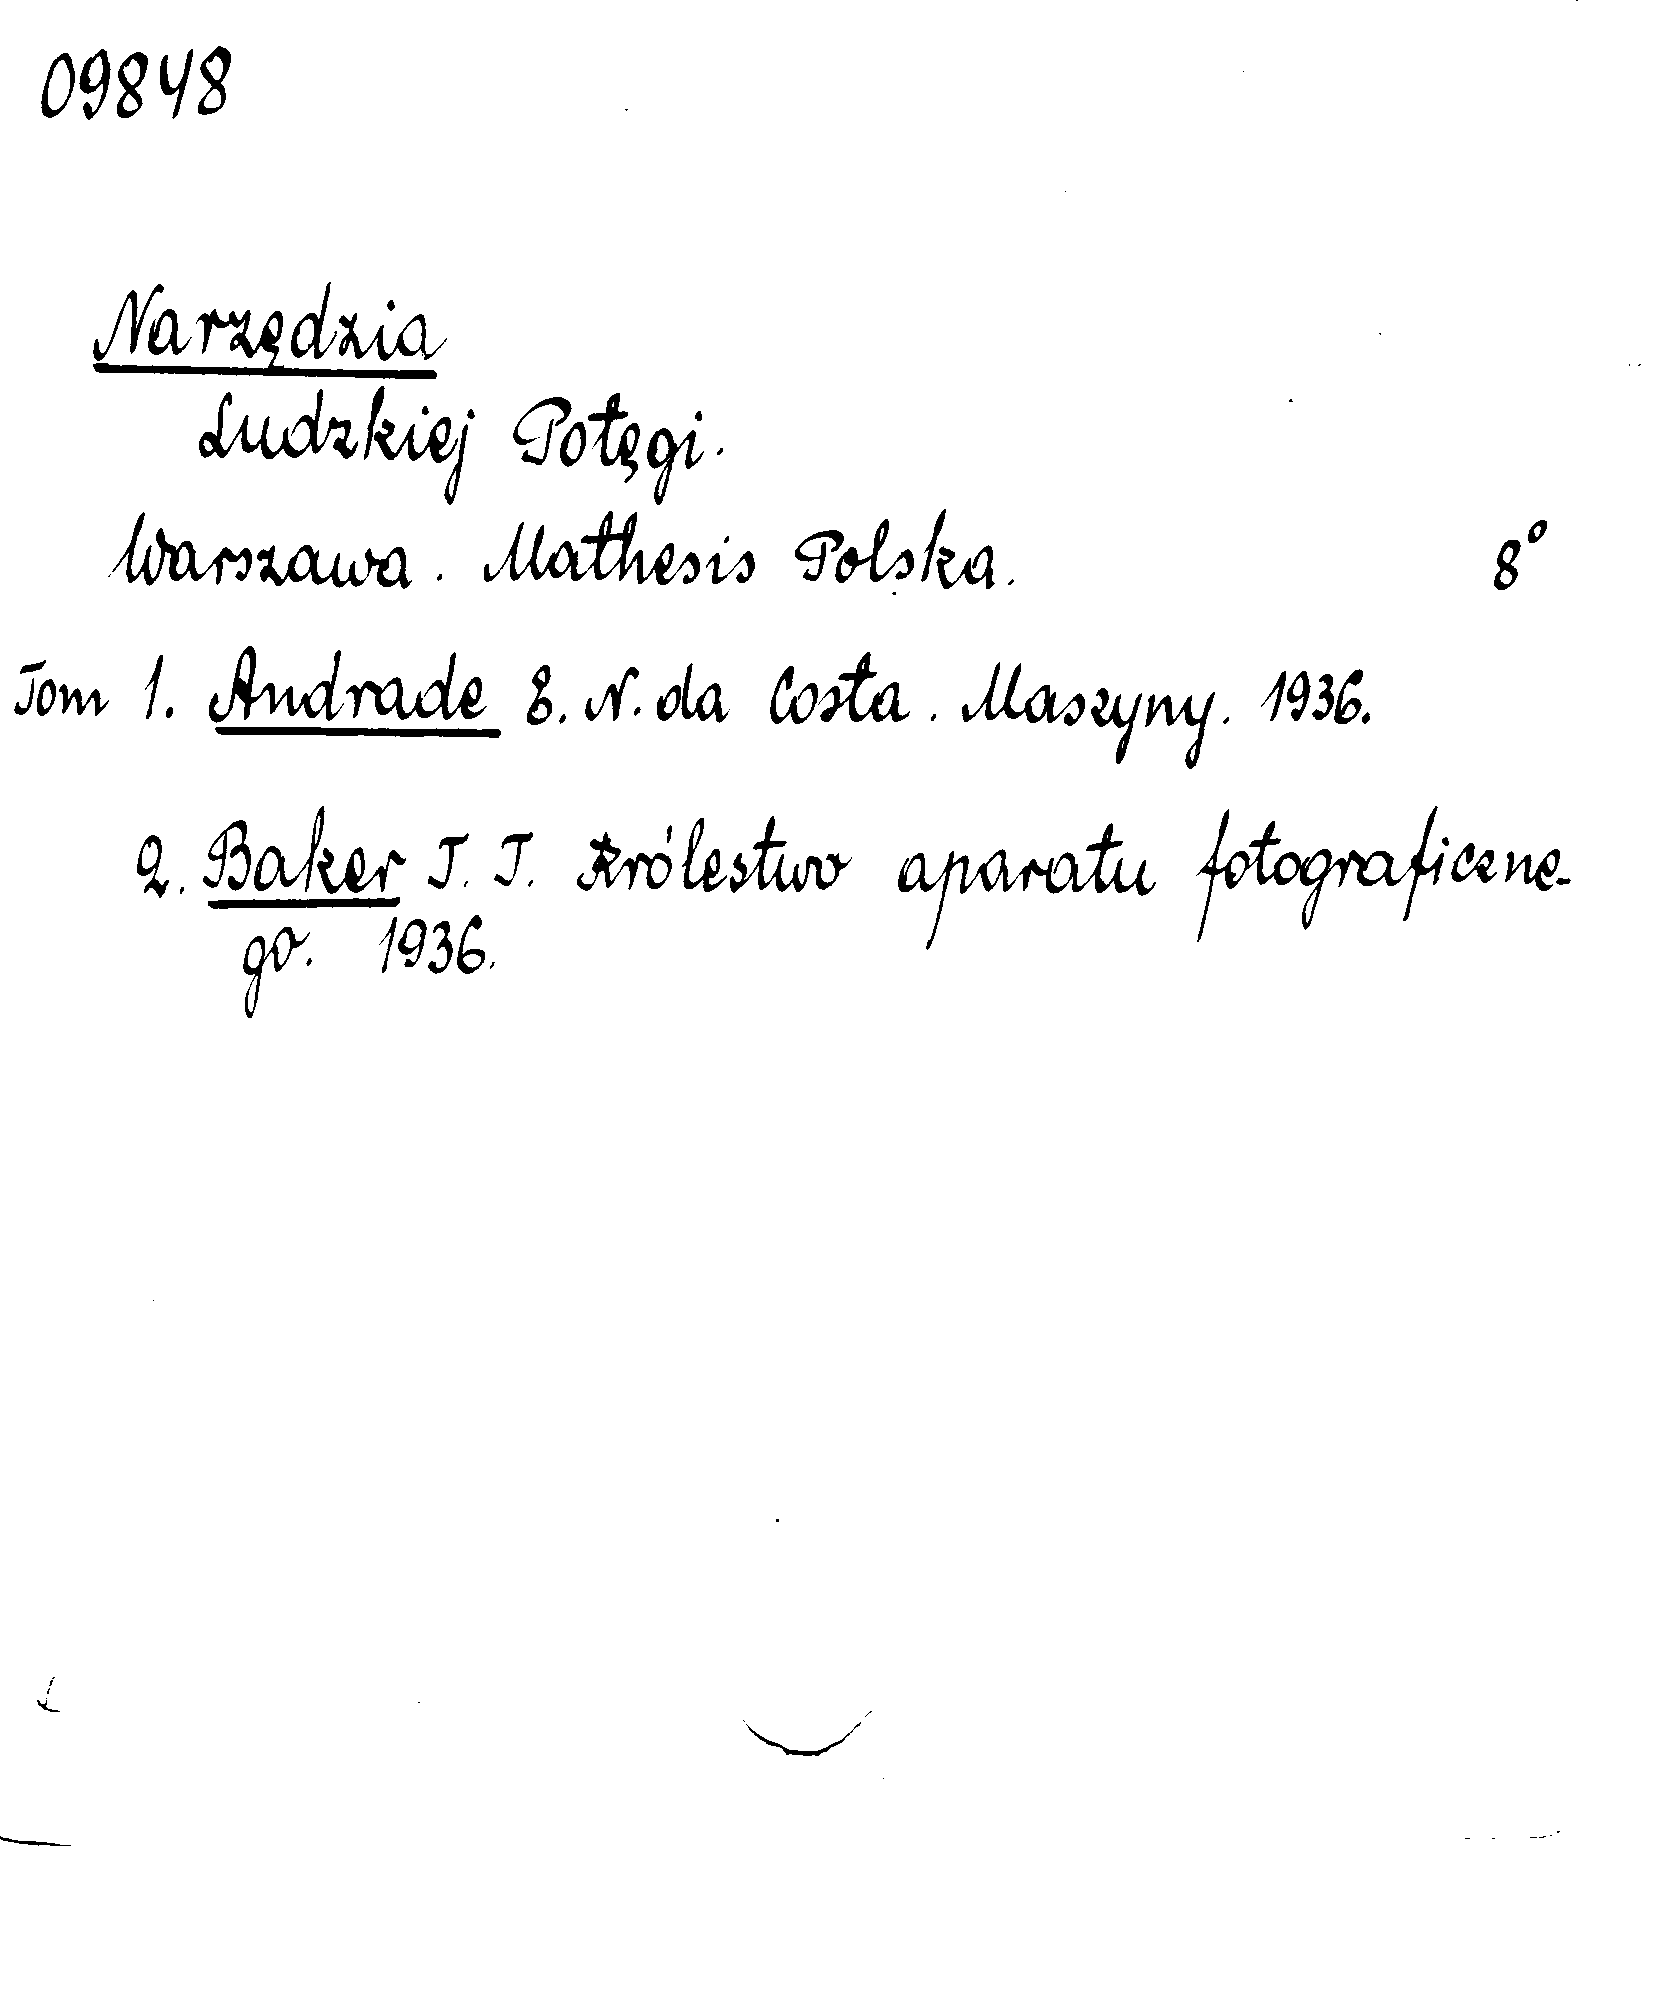 09848
Narzędzia
Ludzkiej Potęgi.
Warszawa. Mathesis Polska. 8°
Tom 1. Andrade E. N. da Costa. Maszyny. 1936.
2. Baker T. T. Królestwo aparatu fotograficzne-
go. 1936.